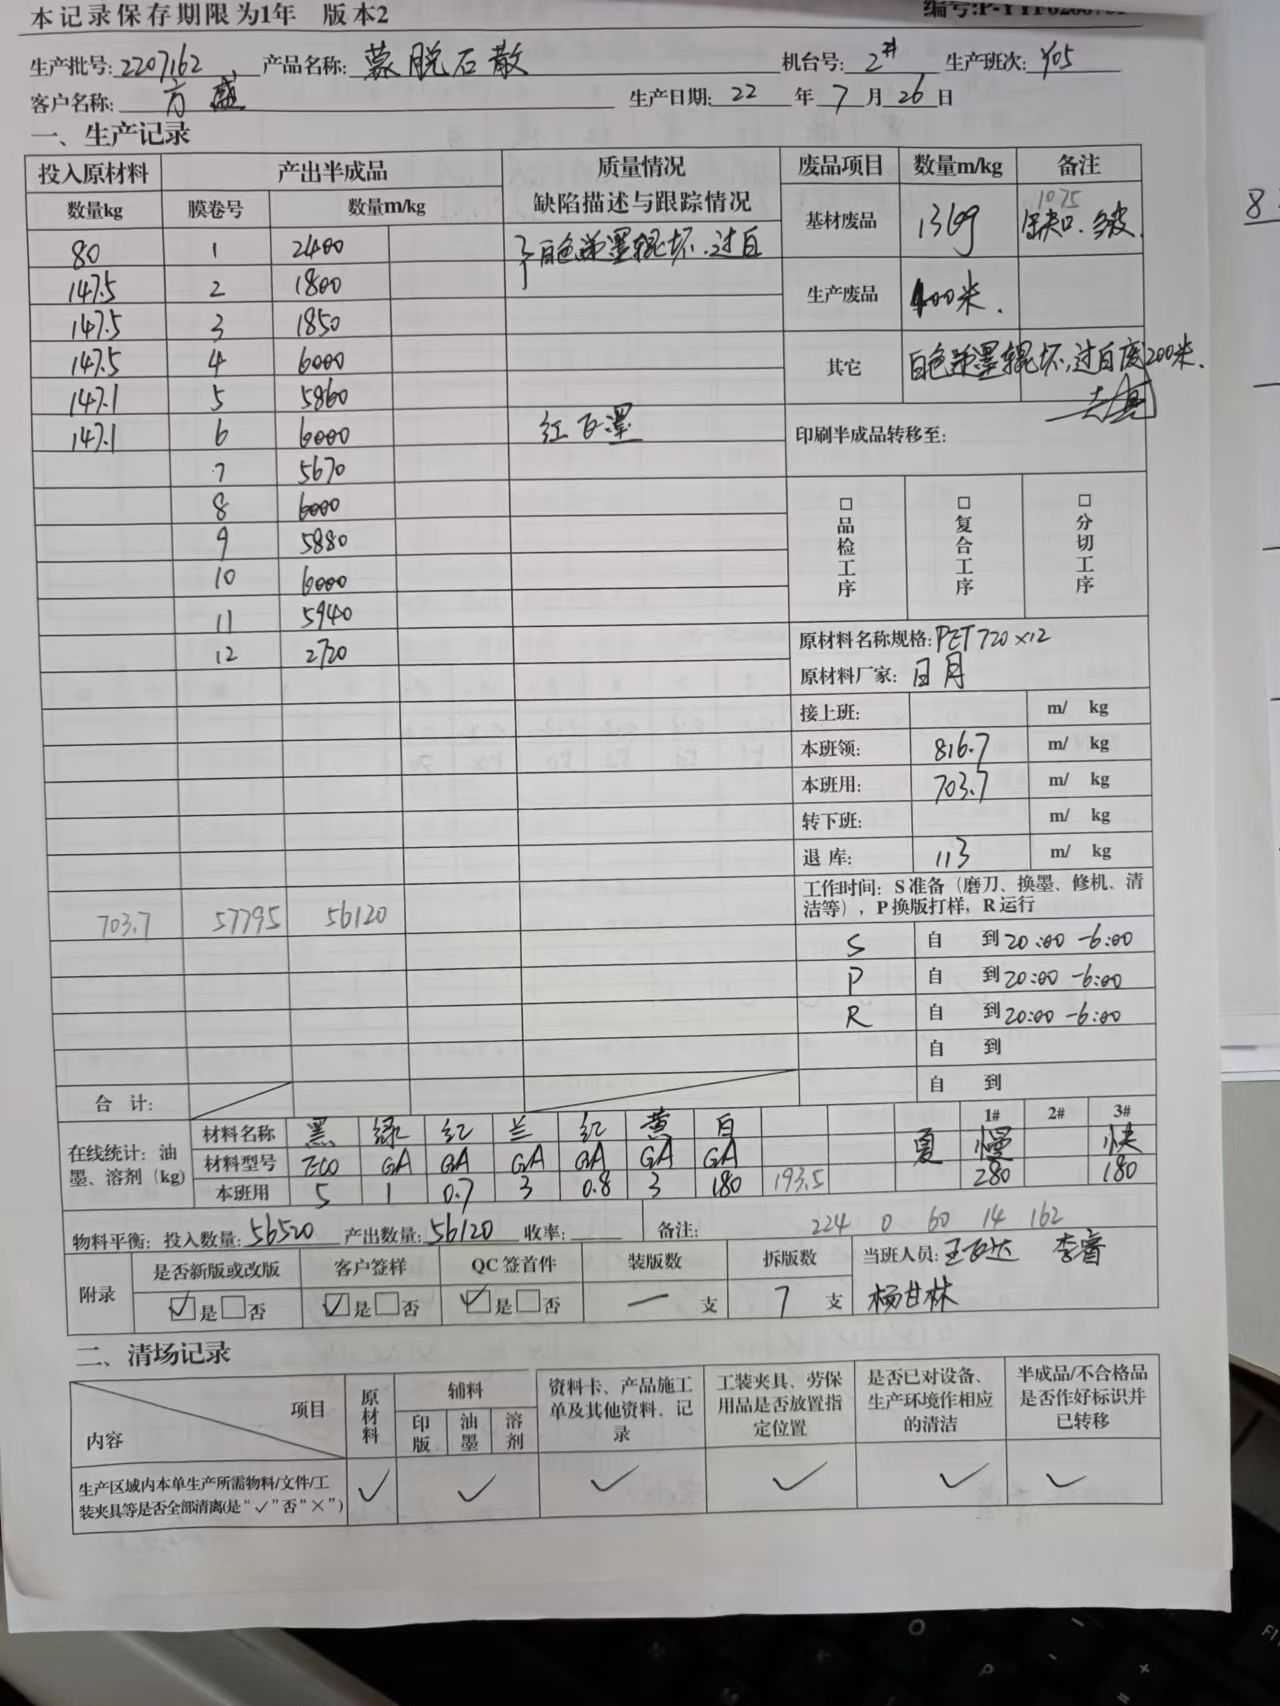 本记录保存期限为1年 版本2
生产批号:2207162 产品名称:蒙脱石散 机台号:2# 生产班次:Y05
客户名称:方盛 生产日期:22年7月26日
一、生产记录
投入原材料 产出半成品 质量情况 废品项目 数量m/kg 备注
数量kg 膜卷号 数量m/kg 缺陷描述与跟踪情况
基材废品 13kg 1075 缺口.多皮.
80 1 2400 白色递墨辊坏.过白
147.5 2 1800 生产废品 400米.
147.5 3 1850
147.5 4 6000 其它 白色递墨辊坏,过白废200米.
147.1 5 5860
147.1 6 6000 红百墨 印刷半成品转移至:
7 5670
8 6000 □品检工序 □复合工序 □分切工序
9 5880
10 6000
11 5940
12 2720 原材料名称规格:PET720×12
原材料厂家:日月
接上班: m/ kg
本班领: 816.7 m/ kg
本班用: 703.7 m/ kg
转下班: m/ kg
退 库: 113 m/ kg
703.7 57795 56120 工作时间:S准备(磨刀、换墨、修机、清
洁等),P换版打样,R运行
S 自 到20:00-6:00
P 自 到20:00-6:00
R 自 到20:00-6:00
自 到
合 计: 自 到
在线统计:油墨、溶剂(kg) 1# 2# 3#
材料名称 黑 绿 红 兰 红 黄 白 夏 慢 快
材料型号 ZCO GA GA GA GA GA GA
本班用 5 1 0.7 3 0.8 3 180 193.5 280 180
物料平衡:投入数量:56520 产出数量:56120 收率: 备注: 224 0 60 14 162
附录 是否新版或改版 客户签样 QC签首件 装版数 拆版数 当班人员:王百达 李睿
☑是□否 ☑是□否 ☑是□否 一支 7支 杨甘林
二、清场记录
项目 原材料 辅料 资料卡、产品施工单及其他资料、记录 工装夹具、劳保用品是否放置指定位置 是否已对设备、生产环境作相应的清洁 半成品/不合格品是否作好标识并已转移
内容 印版 油墨 溶剂
生产区域内本单生产所需物料/文件/工
装夹具等是否全部清离(是“✓”否“×”) ✓ ✓ ✓ ✓ ✓ ✓